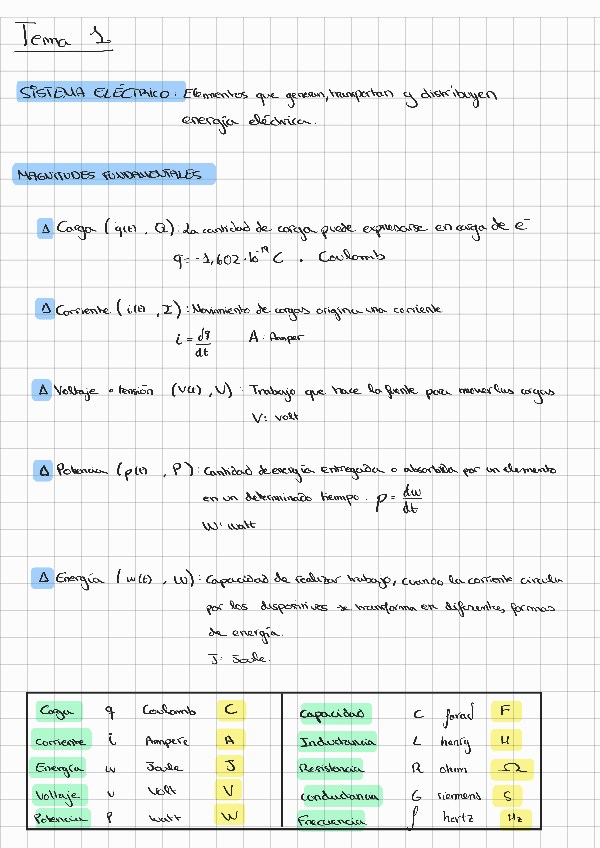 Tema 1
SISTEMA ELÉCTRICO: Elementos que generan, transportan y distribuyen
energía eléctrica.
MAGNITUDES FUNDAMENTALES
Δ Carga (q(t), Q): La cantidad de carga puede expresarse en carga de e⁻
q = -1,602·10⁻¹⁹ C . Coulomb
Δ Corriente (i(t), I): Movimiento de cargas origina una corriente
i = dq/dt A: Amper
Δ Voltaje o tensión (V(t), V): Trabajo que hace la fuente para mover las cargas
V: volt
Δ Potencia (p(t), P): Cantidad de energía entregada o absorbida por un elemento
en un determinado tiempo. p = dw/dt
W: watt
Δ Energía (w(t), W): Capacidad de realizar trabajo, cuando la corriente circula
por los dispositivos se transforma en diferentes formas
de energía.
J: Joule.
Carga q Coulomb C Capacidad C farad F
Corriente i Ampere A Inductancia L henry H
Energía w Joule J Resistencia R ohm Ω
Voltaje v Volt V Conductancia G siemens S
Potencia p watt W Frecuencia f hertz Hz